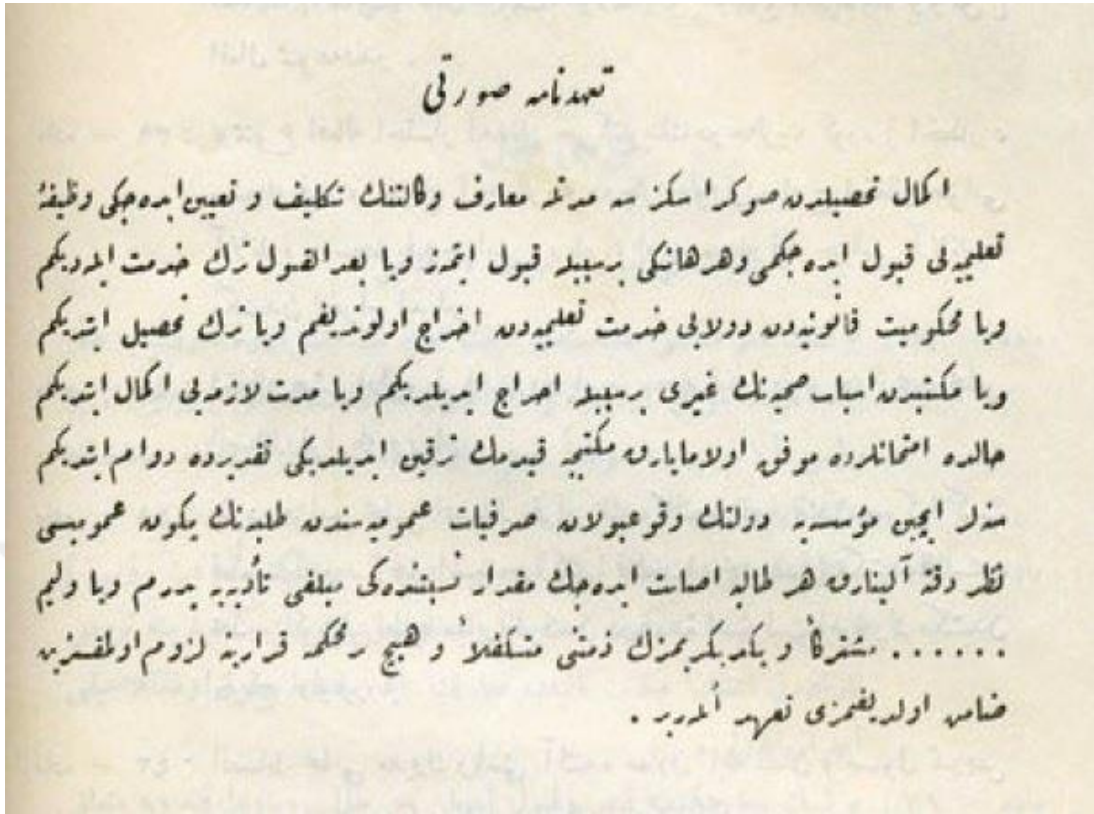 تعهدنامه صورتی
اكمال تحصیلدن صوكرا سكز سنه مدتله معارف وكالتنك تكلیف و تعیین ایده‌جكی وظیفهٔ
تعلیمیه‌یی قبول ایده‌جكمی وهرهانكی بر سببله قبول ایتمز ویا بعدالقبول ترك خدمت ایلدیكم
ویا محكومیت قانونیه‌دن دولایی خدمت تعلیمیه‌دن اخراج اولوندیغم ویا ترك تحصیل ایتدیكم
ویا مكتبدن اسباب صحیه‌نك غیری بر سببله اخراج ایدیلدیكم ویا مدت لازمه‌یی اكمال ایتدیكم
حالده امتحانلرده موفق اولامایارق مكتبجه قیدمك ترقین ایدیلدیكی تقدیرده دوام ایتدیكم
سنه‌لر ایچین مؤسسه‌یه دولتك وقوعبولان صرفیات عمومیه‌سندن طلبه‌نك یكون عمومیسی
نظر دقته آلینارق هر طالبه اصابت ایده‌جك مقدار نسبتنده‌كی مبلغی تأدیه‌یه پدرم ویا ولیم
...... مشتركاً و یكدیكریمزك ذمتنی متكفلاً و هیچ بر محكمه قرارینه لزوم اولمقسزین
ضامن اولدیغمزی تعهد ایلرز .